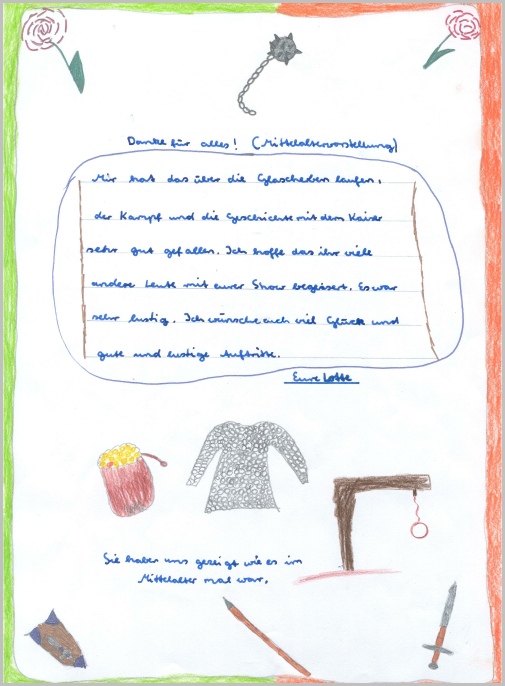 Danke für alles! (Mittelaltervorstellung)
Mir hat das über die Glascherben laufen,
der Kampf und die Geschichte mit dem Kaiser
sehr gut gefallen. Ich hoffe das ihr viele
andere Leute mit eurer Show begeisert. Es war
sehr lustig. Ich wünsche euch viel Glück und
gute und lustige Auftritte.
Eure Lotte
Sie haben uns gezeigt wie es im
Mittelalter mal war.